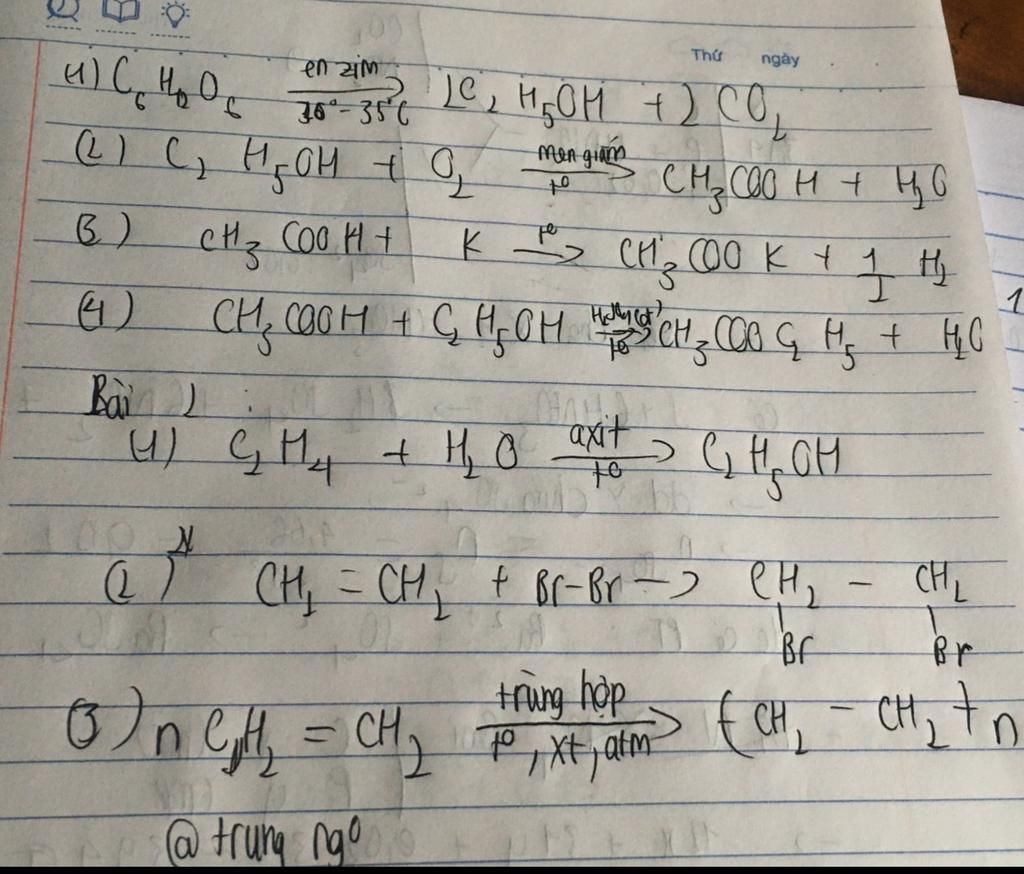 Thứ ngày
(1) C₆H₁₂O₆ —en zim/30°-35°C→ 2C₂H₅OH + 2CO₂
(2) C₂H₅OH + O₂ —men giấm/t°→ CH₃COOH + H₂O
(3) CH₃COOH + K —t°→ CH₃COOK + 1/2 H₂
(4) CH₃COOH + C₂H₅OH —H₂SO₄(đ)/t°→ CH₃COOC₂H₅ + H₂O
Bài 2 :
(1) C₂H₄ + H₂O —axit/t°→ C₂H₅OH
(2) CH₂ = CH₂ + Br-Br → CH₂ - CH₂
Br Br
(3) n CH₂ = CH₂ —trùng hợp/t°, xt, atm→ (CH₂ - CH₂)n
@ trung ngo